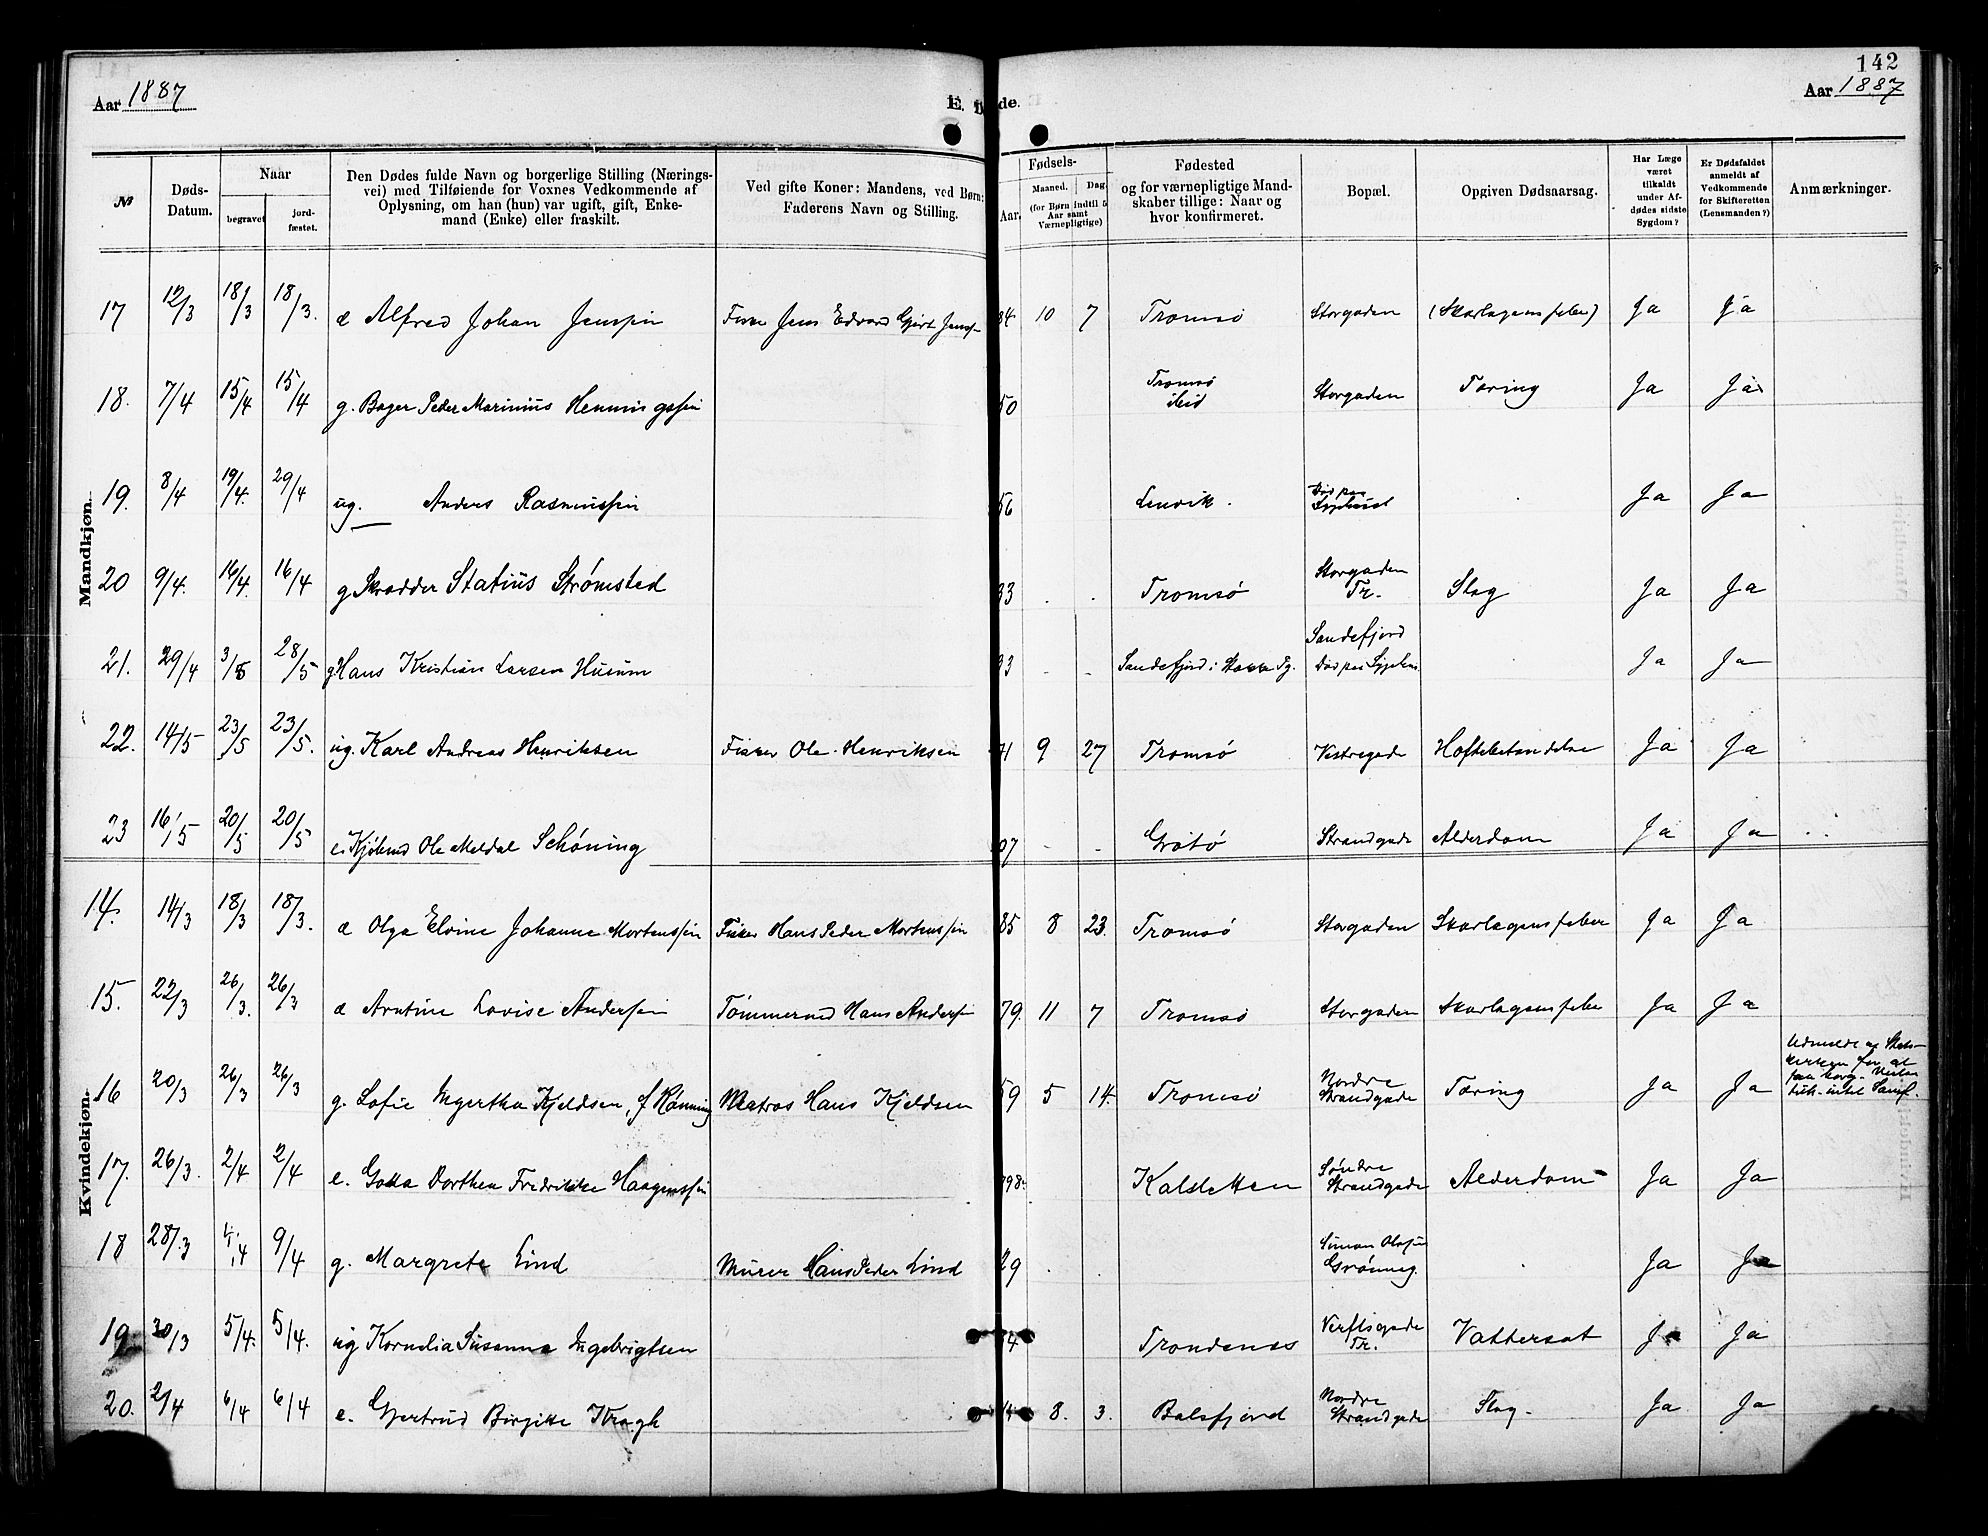 142
Aar 1887
E. Døde.
Aar 1887
№
Døds-
Datum.
Naar
begravet
jord-
fæstet.
Den Dødes fulde Navn og borgerlige Stilling (Nærings-
vei) med Tilføiende for Voxnes Vedkommende af
Oplysning, om han (hun) var ugift, gift, Enke-
mand (Enke) eller fraskilt.
Ved gifte Koner: Mandens, ved Børn:
Faderens Navn og Stilling.
Fødsels-
Aar.
Maaned.
Dag.
(for Børn indtil 5
Aar samt
Værnepligtige)
Fødested
og for værnepligtige Mand-
skaber tillige: Naar og
hvor konfirmeret.
Bopæl.
Opgiven Dødsaarsag.
Har Læge
været
tilkaldt
under Af-
dødes sidste
Sygdom?
Er Dødsfaldet
anmeldt af
Vedkommende
for Skifteretten
(Lensmanden?)
Anmærkninger.
Mandkjøn.
17 12/3 18/3 18/3. d Alfred Johan Jenssen Fisker Jens Edvard Gjert Jenss- 84 10 7 Tromsø Storgaden (Skarlagensfeber) Ja Ja
18. 7/4 15/4 15/4 g. Bager Peder Marinius Henningssen 50 Tromsø ibid Storgaden Tæring Ja Ja
19. 8/4 19/4. 29/4 ug. Anders Rasmussen 56 Lenvik. Død paa Sygehuset Ja Ja
20 9/4. 16/4. 16/4 g Skrædder Statius Strømsted 33 Tromsø Storgaden Tr. Slag Ja Ja
21. 29/4 3/5 28/5 g Hans Kristian Larsen Husum 33 Sandefjord Sandefjord Død paa Sygehus Ja Ja
22. 14/5 23/5 23/5. ug. Karl Andreas Henriksen Fisker Ole Henriksen 71 9 27 Tromsø Vestregade Hoftebetændelse Ja Ja
23 16/5 20/5 20/5 e. Kjøbmd Ole Meldal Schøning 07 Grøtø Strandgade Alderdom Ja Ja
Kvindekjøn.
14. 14/3 18/3 18/3. d Olga Elvine Johanne Mortenssen Fisker Hans Peder Mortenssen 85 8 23. Tromsø Storgaden Skarlagensfeber Ja Ja
15. 22/3 26/3. 26/3 d Arntine Lovise Andersen Tømmermd Hans Andersen 79. 11 7 Tromsø Storgaden Skarlagensfeber Ja Ja
16 20/3 26/3 26/3 g. Sofie Ingertha Kjeldsen, f Rønning Matros Hans Kjeldsen 59 5 14. Tromsø Nordre Strandgade Tæring Ja Ja
17. 26/3. 2/4 2/4 e. Dorthea Fredrikke Haagenssen 798. Kalsletten Søndre Strandgade Alderdom Ja Ja
18 28/3 /4 9/4 g. Margrete Lind Murer Hans Peder Lind 29 Simon Olsen Grønneg. Ja Ja
19 30/3 5/4. 5/4. ug Kornelia Susanna Ingebrigtsen 74 Trondenes Verftsgade Tr. Vattersot Ja Ja
20. 2/4 6/4 6/4 e. Gjertrud Birgitte Kragh 14 8. 3. Balsfjord Nordre Strandgade Slag. Ja Ja